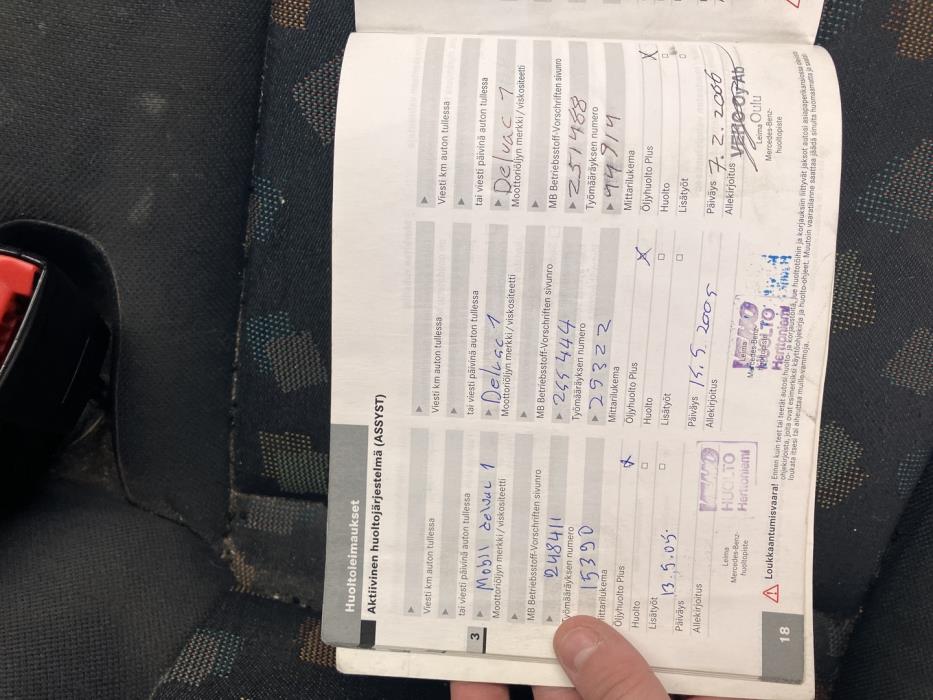 Huoltoleimaukset
Aktiivinen huoltojärjestelmä (ASSYST)
3
Viesti km auton tullessa
tai viesti päivinä auton tullessa
Mobil delvac 1
Moottoriöljyn merkki / viskositeetti
MB Betriebsstoff-Vorschriften sivunro
248411
Työmääräyksen numero
15390
Mittarilukema
Öljyhuolto Plus
Huolto
Lisätyöt
13.5.05.
Päiväys
Allekirjoitus
VEHO
HUOLTO
Herttoniemi
Leima
Mercedes-Benz-
huoltopiste
Viesti km auton tullessa
tai viesti päivinä auton tullessa
Delvac 1
Moottoriöljyn merkki / viskositeetti
MB Betriebsstoff-Vorschriften sivunro
255444
Työmääräyksen numero
29322
Mittarilukema
Öljyhuolto Plus
Huolto
Lisätyöt
Päiväys 15.9.2005
Allekirjoitus
Leima
Mercedes-Benz-
Herttoniemi
Viesti km auton tullessa
tai viesti päivinä auton tullessa
Delvac 1
Moottoriöljyn merkki / viskositeetti
MB Betriebsstoff-Vorschriften sivunro
251488
Työmääräyksen numero
44914
Mittarilukema
Öljyhuolto Plus
Huolto
Lisätyöt
Päiväys 7.2.2006
Allekirjoitus
VEHO Oy Ab
Leima Oulu
Mercedes-Benz-
huoltopiste
Loukkaantumisvaara! Ennen kuin teet tai teetät autosi huolto- ja korjaustöitä, lue huoltotöihin ja korjauksiin liittyvät jaksot autosi asiapaperikansiossa olevista
ohjekirjoista, joita ovat esimerkiksi käyttöohjekirja ja huolto-ohjeet. Muutoin vaaratilanne saattaa jäädä sinulta huomaamatta ja saatat
loukata itsesi tai aiheuttaa muille vammoja.
18